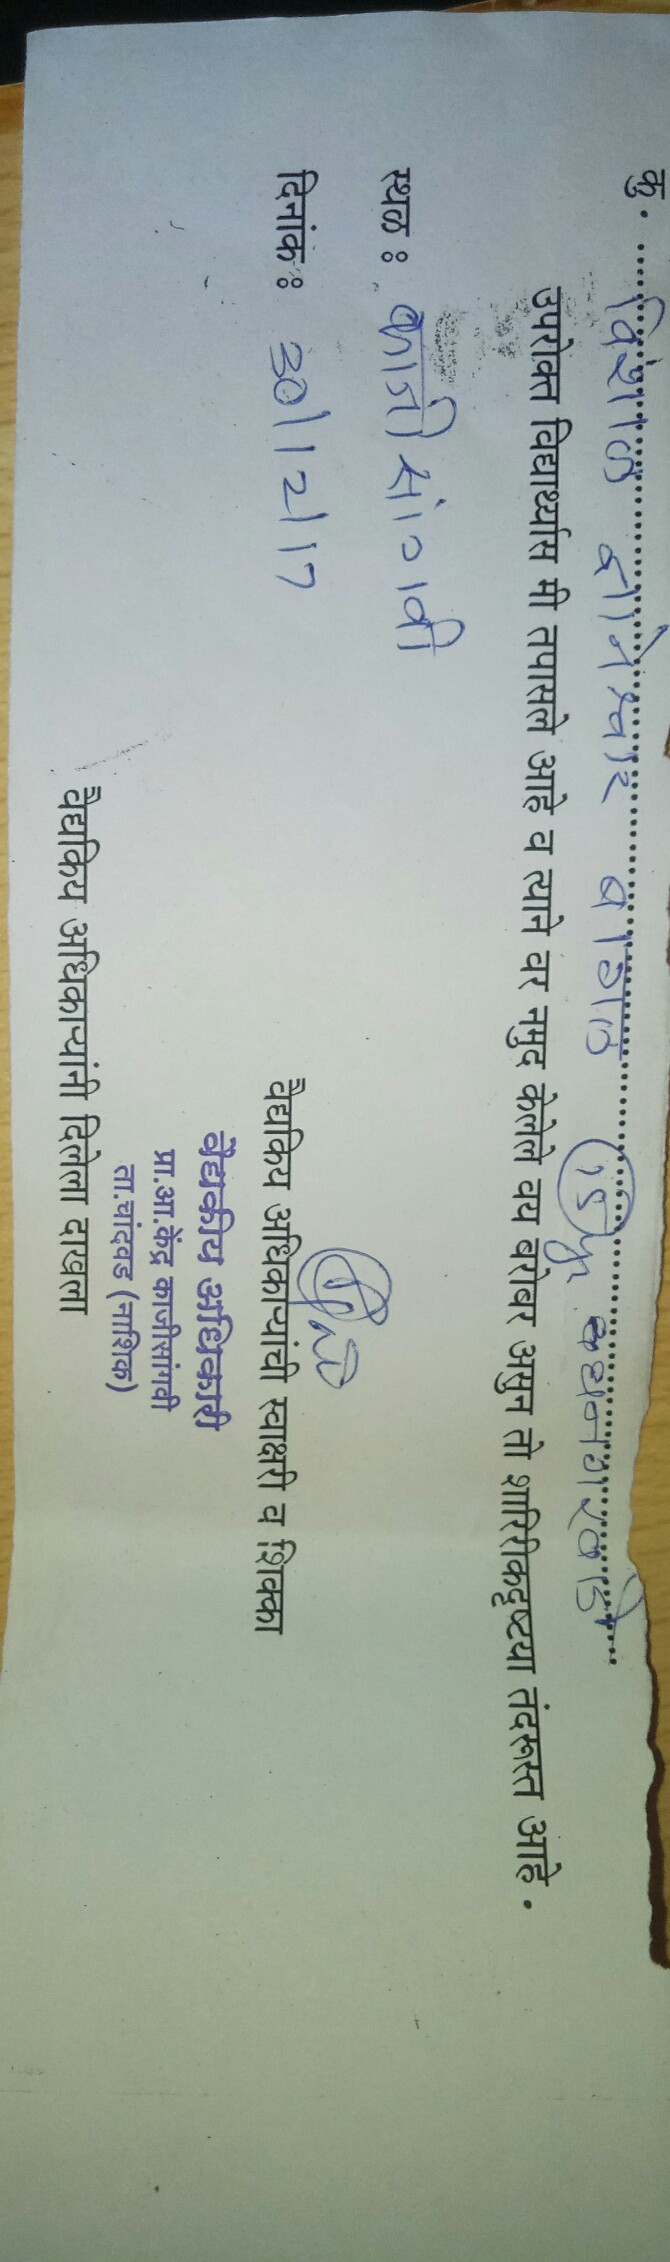 कु. विशाल ज्ञानेश्वर बागल 15 yr
उपरोक्त विद्यार्थ्यास मी तपासले आहे व त्याने वर नमुद केलेले वय बरोबर असुन तो शारिरीकदृष्ट्या तंदरूस्त आहे.
स्थळ : काजीसांगवी
दिनांक : 30/12/17
वैद्यकिय अधिकाऱ्यांची स्वाक्षरी व शिक्का
वैद्यकीय अधिकारी
प्रा.आ.केंद्र काजीसांगवी
ता.चांदवड (नाशिक)
वैद्यकिय अधिकाऱ्यांनी दिलेला दाखला